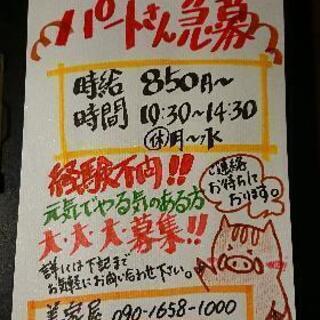 パートさん急募
時給 850円～
時間 10:30～14:30
(休)月～水
経験不問!!
元気でやる気のある方
大・大・大・募集!!
ご連絡
お待ちして
おります。
詳しくは下記まで
お気軽にお問い合わせ下さい。
090-1658-1000